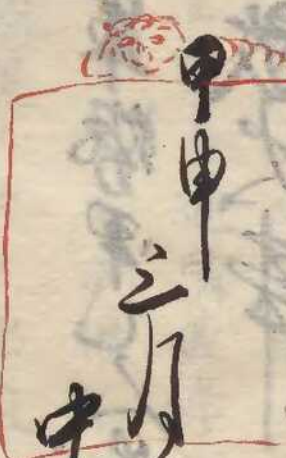 甲申三月
中